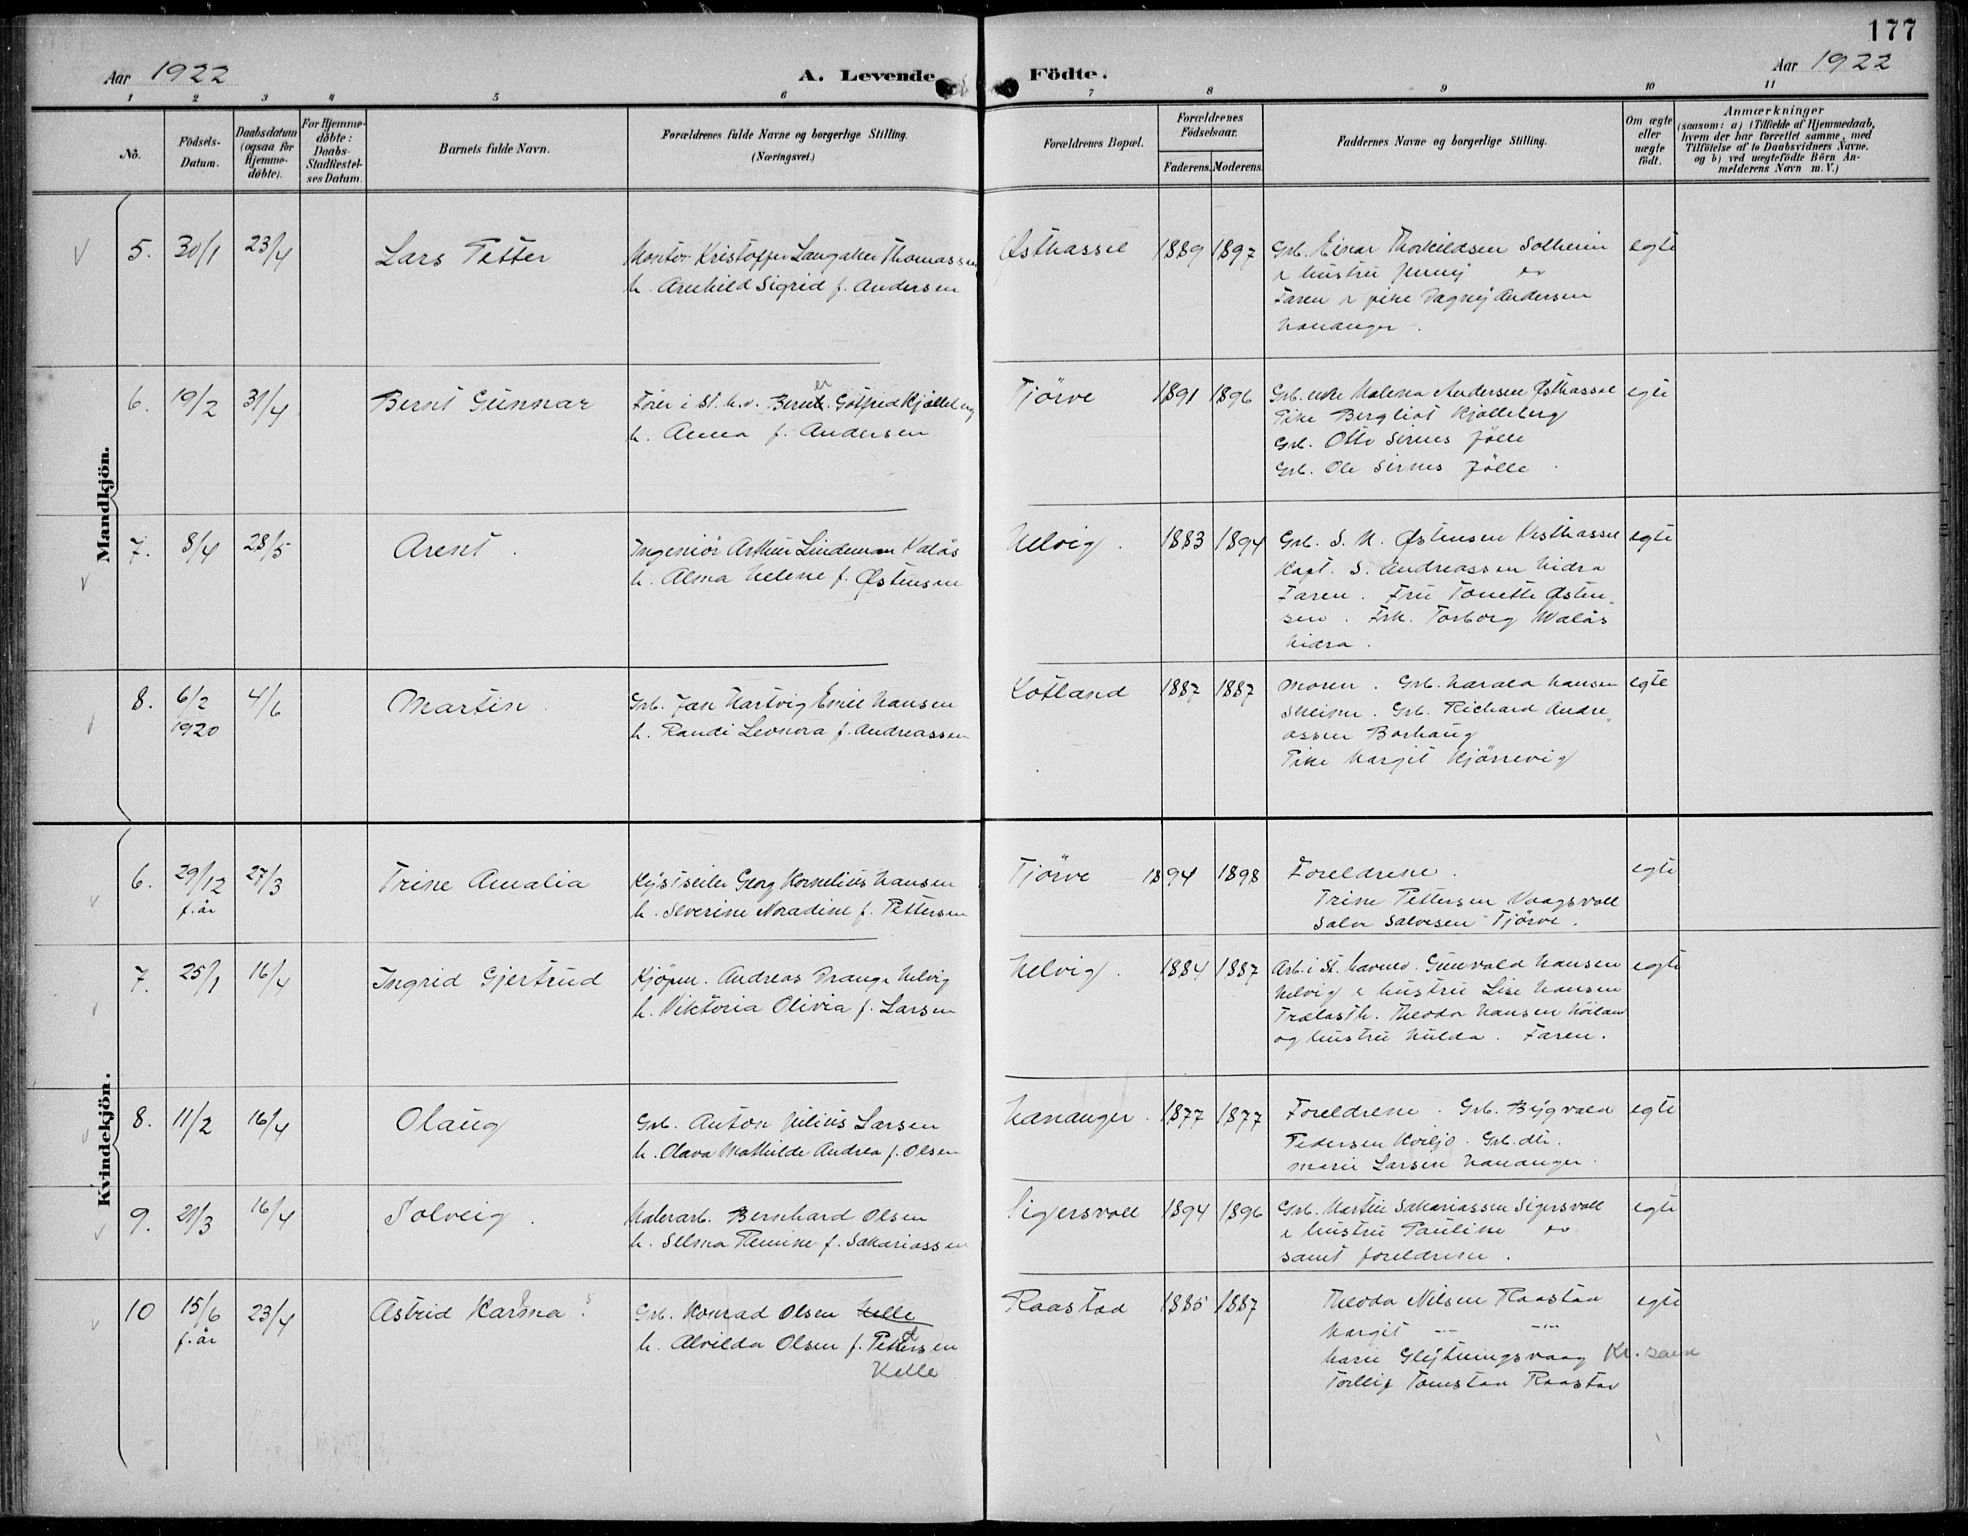 177
Aar 1922
A. Levende Födte.
Aar 1922
1 2 3 4 5 6 7 8 9 10 11
No.
Födsels-
Datum.
Daabsdatum
(ogsaa for
Hjemme-
döbte).
For Hjemme-
döbte:
Daabs-
Stadfæstel-
ses Datum.
Barnets fulde Navn.
Forældrenes fulde Navne og borgerlige Stilling.
(Næringsvei.)
Forældrenes Bopæl.
Forældrenes
Födselsaar.
Faderens. Moderens.
Faddernes Navne og borgerlige Stilling.
Om ægte
eller
uægte
födt.
Anmærkninger
(saasom: a) i Tilfælde af Hjemmedaab,
hvem der har forrettet samme, med
Tilföielse af to Daabsvidners Navne.
og b) ved uægtefödte Börn An-
melderens Navn m. V.)
Mandkjön.
5. 30/1 23/4 Lars Petter
Montør Kristoffer Langaker Thomassen
h. Arnhild Sigrid f. Andersen
Østhassel 1889 1897
Grb. Einar Thorkildsen Solheim
& hustru Jenny
Faren & pike Dagny Andersen
Hananger.
egte
6. 19/2 31/4 Bernt Gunnar
i St. h.v. Bernt Gotfred Kjølleberg
h. Anna f. Andersen
Tjörve 1891 1896
Grb. enke Malena Andersen Østhassel
Pike Bergliot Kjølleberg
Grb. Otto Sirnes Jölle
Grb. Ole Sirnes Jölle.
egte
7. 8/4 28/5 Arent.
Ingeniör Arthur Lindeman Valås
h. Alma Helene f. Østensen
Helvig. 1883 1894
Grb. S. M. Østensen Vesthassel
Kapt. S. Andreassen Hidra
Faren. Fru Tonette Østen-
sen. Frk. Torborg Walås
Hidra.
egte
8. 6/2 1920 4/6 Martin.
Grb. Jan Hartvig Emil Hansen
h. Randi Leonora f. Andreassen
Kotland 1887 1887
Moren. Grb. Harald Hansen
Skeime. Grb. Richard Andre-
assen Borhaug
Pike Margit Kjørrevig
egte
Kvindekjön.
6. 29/12 f.år 27/3 Trine Amalia
Kystseiler Georg Kornelius Hansen
h. Severine Noradine f. Pettersen
Tjörve 1894 1898
Foreldrene.
Trine Pettersen Vaagsvoll
Salve Salvesen Tjörve.
egte
7. 25/1 16/4 Ingrid Gjertrud
Kjöpm. Andreas Drange Helvig
h. Viktoria Olivia f. Larsen
Helvig. 1884 1887
Arb. i St. havnev. Gunvald Hansen
Helvig & hustru Lise Hansen
Trælasth. Theodor Hansen
og hustru Hulda. Faren.
egte
8. 11/2 16/4 Olaug
Grb. Anton Julius Larsen
h. Olava Mathilde Andrea f. Olsen
Hananger. 1877 1877
Foreldrene. Grb. Bygvald
Pedersen Kviljo. Grb. dtr.
Marie Larsen Hananger.
egte
9. 21/3 16/4 Solveig.
Malerarb. Bernhard Olsen
h. Selma f. Sakariassen
Sigersvoll 1894 1896
Grb. Martin Sakariassen Sigersvoll
& hustru Pauline
samt foreldrene.
egte
10 15/6 f.år 23/4 Astrid Karma
Grb. Konrad Olsen Kelle
h. Alvilda Olsen f. Pettersen
Kelle
Raastad 1885 1887
Theodor Nilsen Raastad
Margit
Marie
Raastad
egte